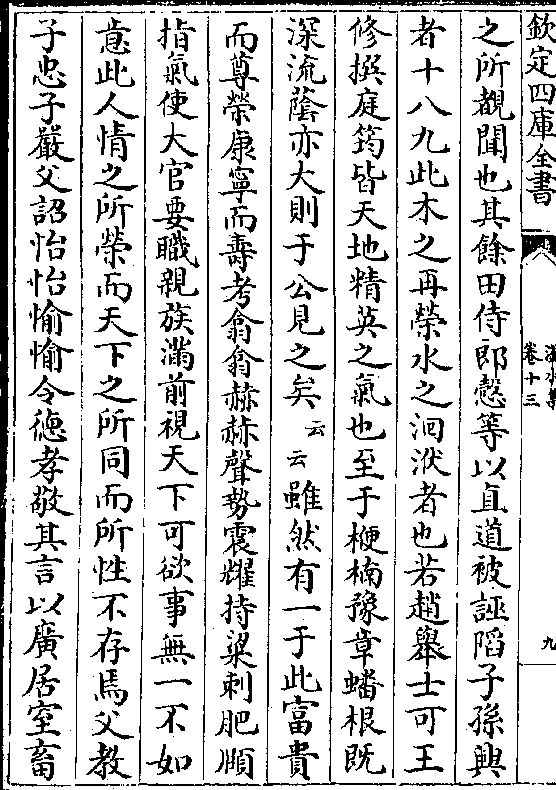 欽定四庫全書
卷十三
九
之所覩聞也其餘田侍郎慤等以直道被誣陷子孫興
者十八九此木之再榮水之洄洑者也若趙舉士可王
修撰庭筠皆天地精英之氣也至于楩楠豫章蟠根既
深流蔭亦大則于公見之矣云云雖然有一于此富貴
而尊榮康寧而壽考翕翕赫赫聲勢震耀持粱刺肥頤
指氣使大官要職親族滿前視天下可欲事無一不如
意此人情之所榮而天下之所同而所性不存焉父教
子忠子嚴父詔怡怡愉愉令德孝敬其言以廣居室畜